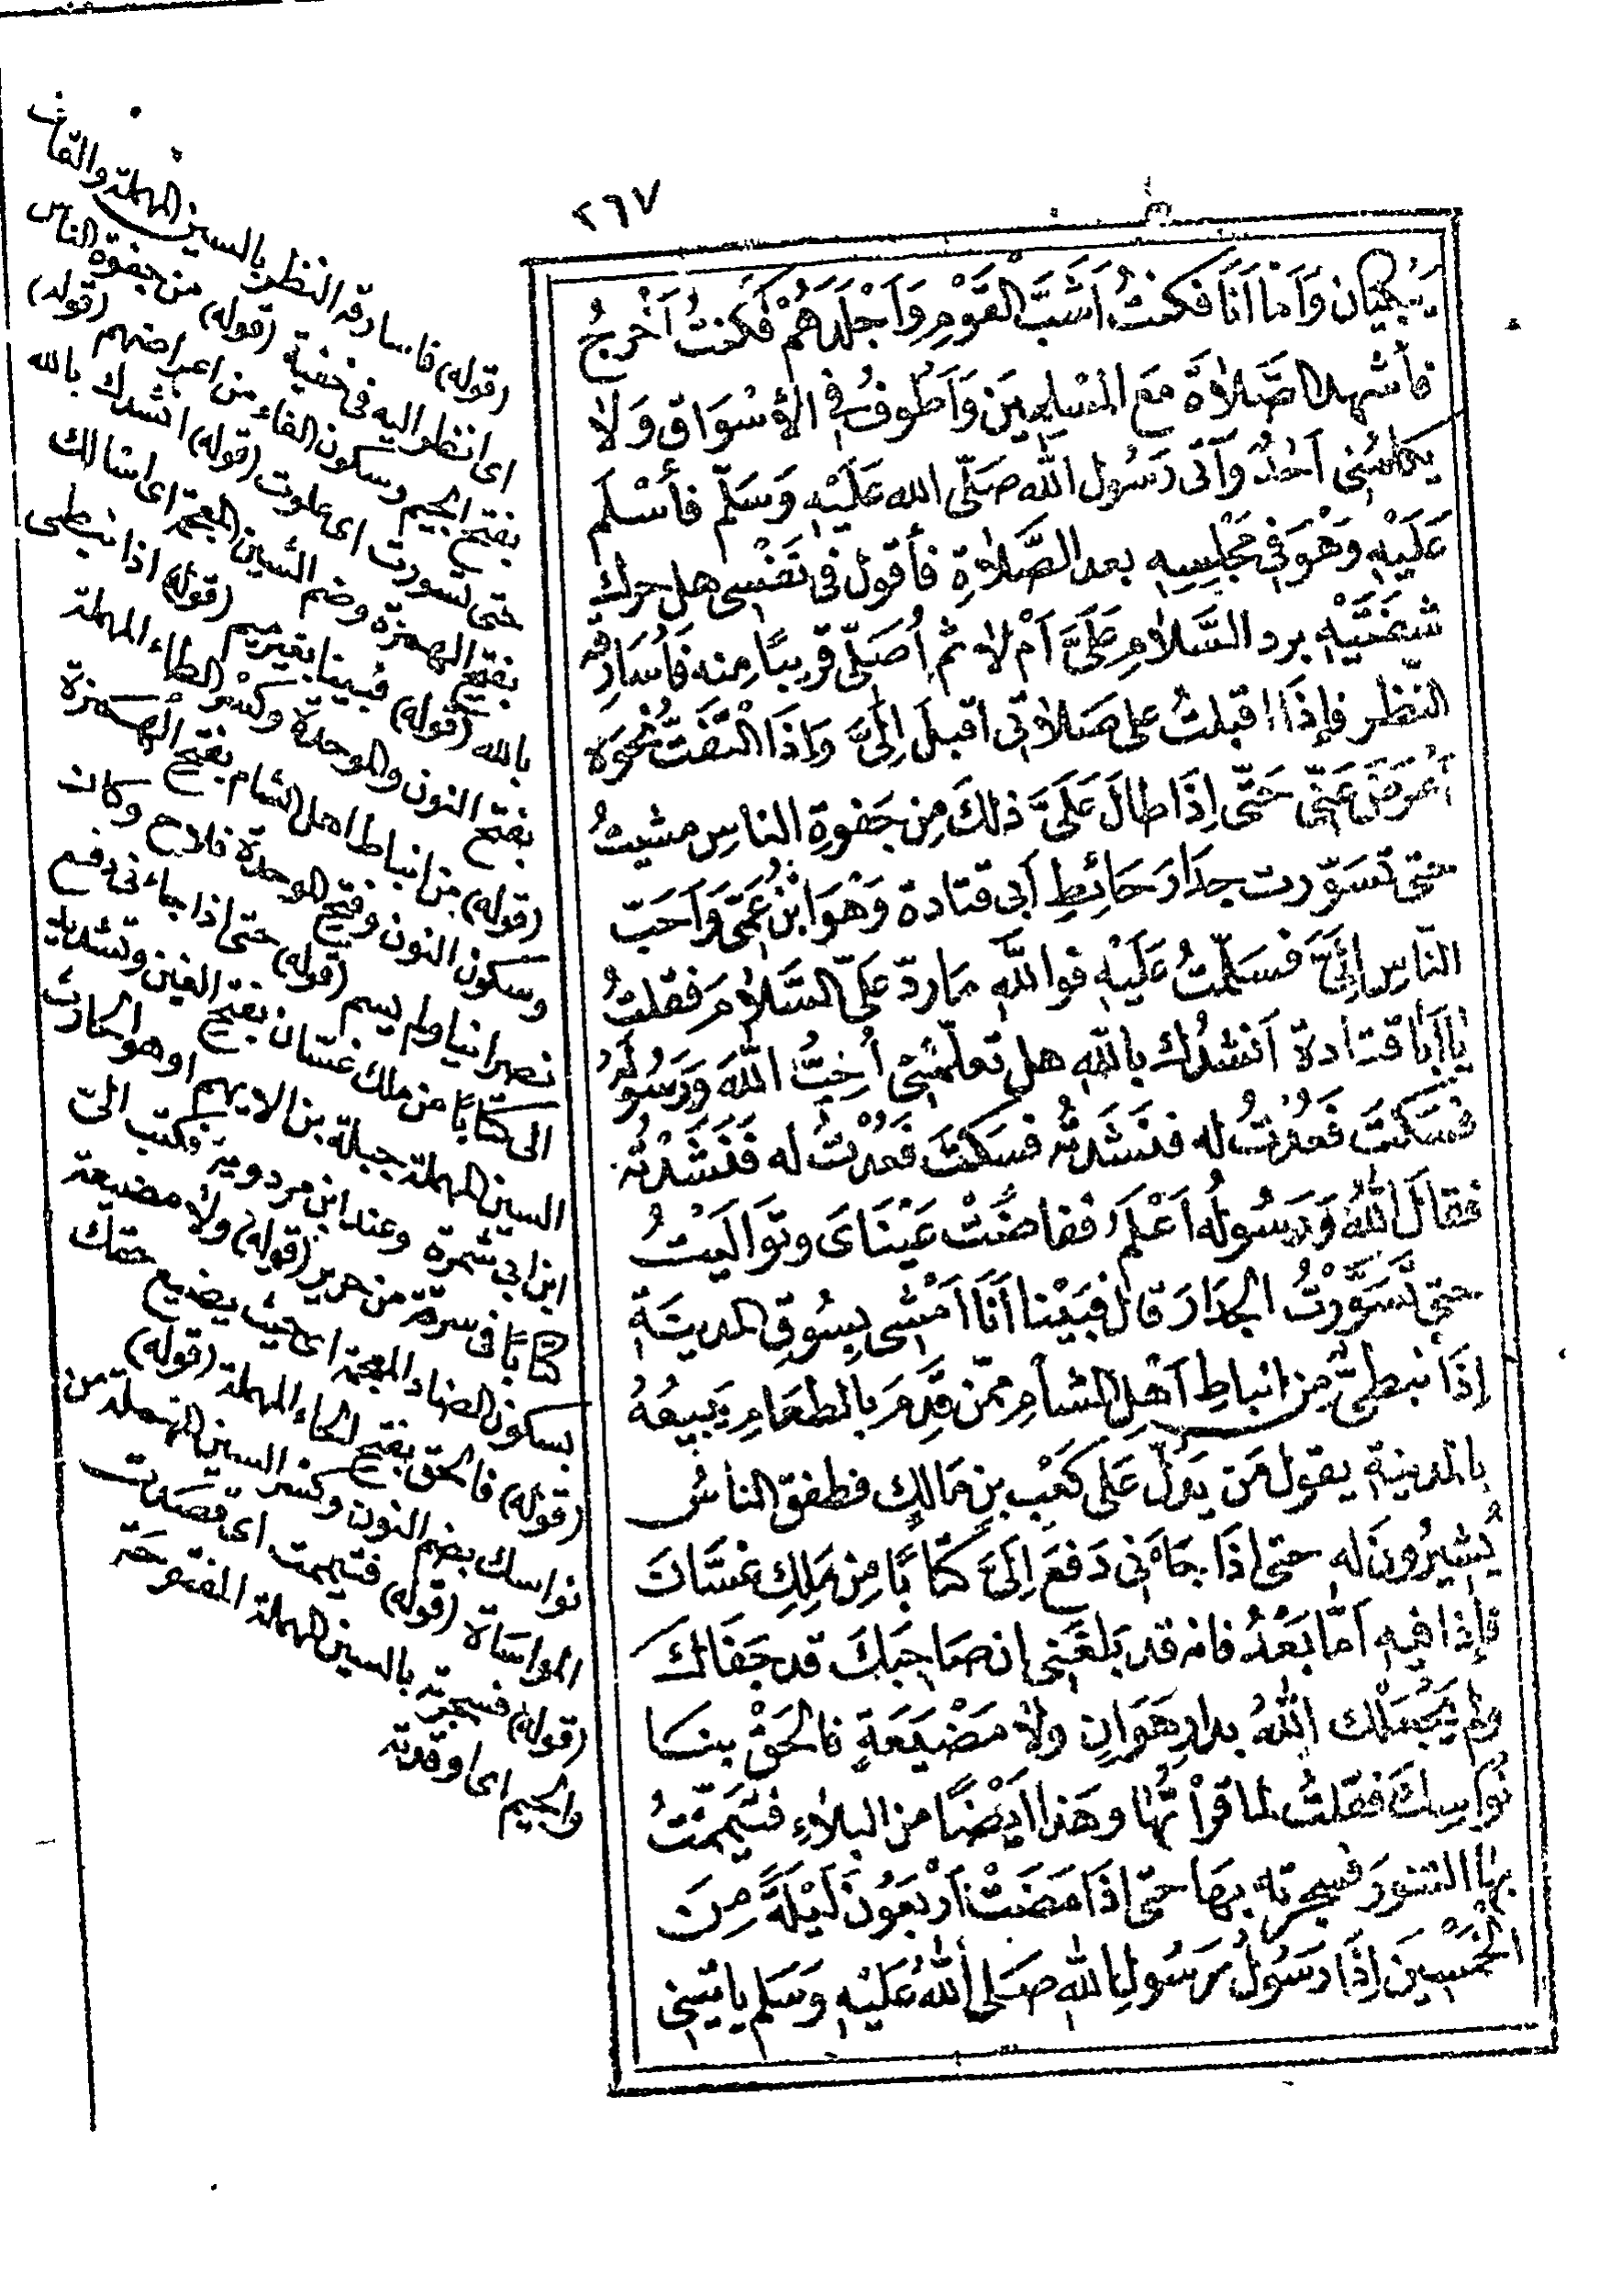 ٢٦٧
يَبْكِيَان وَاَمّا اَنَا فَكنتُ اَشَبَّ القَوْمِ وَاَجْلَدَهُمْ فَكنتُ اَخْرجُ
فأشهد الصَّلاٰةَ مَعَ المُسْلِمِيَن وَاَطُوفُ فِي الاَسْوَاقِ وَلاٰ
يكلّمُنِى اَحَدٌ وَآتى رَسُول الله صَلّى الله عَلَيْهِ وَسَلّم فأسْلم
عَلَيْهِ وَهْوَ فِى مَجْلِسِهِ بعد الصَّلاٰةِ فأقول فى نَفْسِى هل حرك
شَفَتَيْهِ برد السَّلاٰمِ عَلَىَّ اَمْ لاٰ ثم اُصَلّى قَرِيبًا مِنه فَاُسَارِقُه
النّظر فإِذَا اقبلتُ على صَلاٰتى اقبلَ اِلَىَّ وَاِذَا الْتفَتُّ نحْوَه
اَعْرَضَ عَنِّى حَتّى اِذَا طالَ عَلَىَّ ذلكَ مِن جَفوةِ الناسِ مشيتُ
حتى تسَوّرت جِدَارَ حَائِطِ اَبى قتادة وَهْوَ ابْنُ عَمِّى وَاَحَبّ
النّاسِ اِلَىَّ فَسَلّمتُ عَلَيْهِ فوالله مَا ردّ عَلىّ السَّلاٰمَ فقلتُ
يَا اَبَا قتادة اَنشدُك باللهِ هل تعلمُنِى اُحِبُّ اللهَ وَرَسُولَهُ
فسَكتَ فَعُدْتُ له فنَشَدتُه فسَكتَ فَعُدْتُ له فَنَشَدْتُه
فقالَ اللهُ وَرَسُولُه اَعْلَمُ ففاضَتْ عَيْنَاىَ وتَوَالَيْتُ
حتى تَسَوَّرْتُ الجِدَارَ قال فبَيْنا اَنَا اَمْشِى بِسُوقِ المدينَةِ
إذَا نبطىٌّ مِن انباطِ اَهْلِ الشأمِ مِمّن قَدِمَ بالطعَامِ يَبِيعُهُ
بالمدينةِ يقول مَن يَدلّ عَلى كَعْبِ بنِ مَالِكٍ فطفق الناسُ
يُشِيرُونَ له حتى اِذَا جَاءَنى دَفعَ اِلَىَّ كتَابًا مِن مَلِكِ غسَّانَ
فإذا فيه اَمّا بَعْدُ فانه قد بَلغَنِى ان صَاحِبَكَ قد جَفَاكَ
ولم يَجْعَلْك اللهُ بدارِ هَوَانٍ ولاٰ مَضْيَعَةٍ فالحَقْ بنا
نُوَاسِكَ فقلتُ لما قرأتُها وهَذا اَيْضًا من البلاٰءِ فتَيَمَّمْتُ
بها التنورَ فسجرته بهَا حتى اذَا مَضَتْ اَرْبَعُونَ لَيْلَةً مِنَ
الخمْسِيَن اِذَا رَسُولُ رَسُولِ اللهِ صَلى اللهُ عَلَيْهِ وَسَلم ياتينِى
(قوله) فاسارقه النظر بالسين المهملة والقاف
اى انظر اليه فى خفية (قوله) من جفوة الناس
بفتح الجيم وسكون الفاء من اعراضهم (قوله)
حتى تسورت اى علوت (قوله) انشدك بالله
بفتح الهمزة وضم الشين المعجمة اى اسألك
بالله (قوله) فبينا بغير ميم (قوله) اذا نبطى
بفتح النون والموحدة وكسر الطاء المهملة
(قوله) من انباط اهل الشام بفتح الهمزة
وسكون النون وفتح الموحدة فلاح وكان
نصرانيا ولم يسم (قوله) حتى اذا جاءنى دفع
الى كتابًا من ملك غسّان بفتح الغين وتشديد
السين المهملة جبلة بن الايهم او هو الحارث
ابن ابى شمرة وعند ابن مردويه فكتب الىّ
كتابًا فى سرقة من حرير (قوله) ولا مضيعة
بسكون الضاد المعجمة اى حيث يضيع حقك
(قوله) فالحق بفتح الحاء المهملة (قوله)
نواسك بضم النون وكسر السين المهملة من
المواساة (قوله) فتيممت اى قصدت
(قوله) فسجرته بالسين المهملة المفتوحة
والجيم اى اوقدته